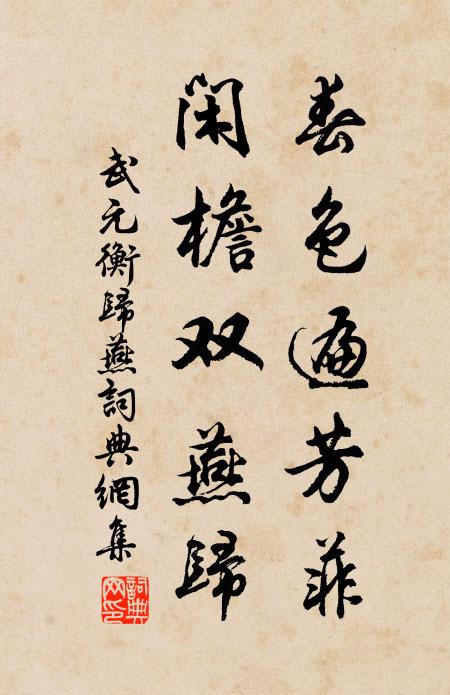 春色遍芳菲
閑檐双燕歸
武元衡歸燕詞典網集
詞典網印